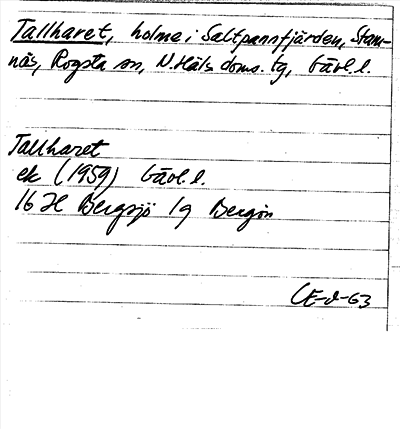 Tallharet, holme i Saltpannfjärden, Stam-
näs, Rogsta sn, N. Häls. doms. tg, Gävl. l.
Tallharet
ek (1959) Gävl. l.
16 H Bergsjö 1g Bergön
CE-d-63